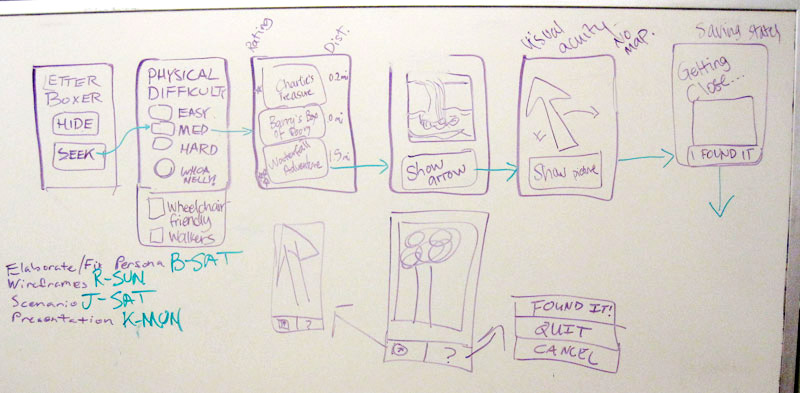 LETTER
BOXER
HIDE
SEEK
PHYSICAL
DIFFICULTY
EASY
MED
HARD
WHOA
NELLY!
Wheelchair-
friendly
Walkers
Rating
Dist.
Charlie's
Treasure
0.2mi
Barry's Box
of Doom
Waterfall
Adventure
1.5mi
Show
arrow
Visual
acuity
No
map.
Show picture
Saving states
Getting
Close...
I FOUND IT
Elaborate/Fix Persona B-SAT
Wireframes R-SUN
Scenario J-SAT
Presentation K-MON
?
?
FOUND IT!
QUIT
CANCEL